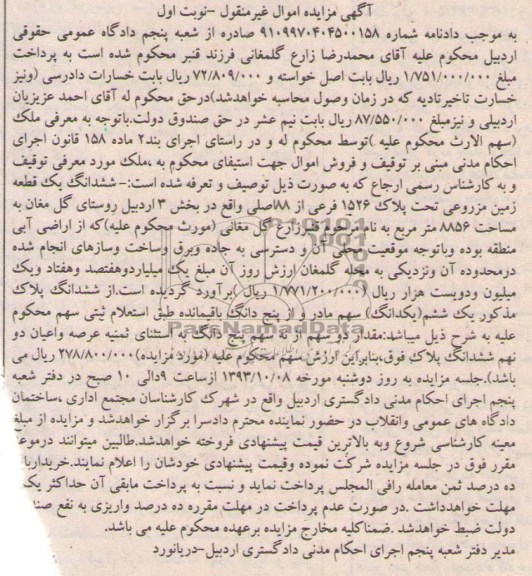 آگهی مزایده اموال غیرمنقول -نوبت اول
به موجب دادنامه شماره ۹۱۰۹۹۷۰۴۰۴۵۰۰۱۵۸ صادره از شعبه پنجم دادگاه عمومی حقوقی
اردبیل محکوم علیه آقای محمدرضا زارع گلمغانی فرزند قنبر محکوم شده است به پرداخت
مبلغ ۱/۷۵۱/۰۰۰/۰۰۰ ریال بابت اصل خواسته و ۷۲/۸۰۹/۰۰۰ ریال بابت خسارات دادرسی (ونیز
خسارت تاخیرتادیه که در زمان وصول محاسبه خواهدشد)درحق محکوم له آقای احمد عزیزیان
اردبیلی و نیزمبلغ ۸۷/۵۵۰/۰۰۰ ریال بابت نیم عشر در حق صندوق دولت.باتوجه به معرفی ملک
(سهم الارث محکوم علیه )توسط محکوم له و در راستای اجرای بند۲ ماده ۱۵۸ قانون اجرای
احکام مدنی مبنی بر توقیف و فروش اموال جهت استیفای محکوم به ،ملک مورد معرفی توقیف
و به کارشناس رسمی ارجاع که به صورت ذیل توصیف و تعرفه شده است:- ششدانگ یک قطعه
زمین مزروعی تحت پلاک ۱۵۲۶ فرعی از ۸۸اصلی واقع در بخش ۳ اردبیل روستای گل مغان به
مساحت ۸۸۵۶ متر مربع به نام مرحوم قنبرزارع گل مغانی (مورث محکوم علیه)که از اراضی آبی
منطقه بوده وباتوجه موقعیت محلی آن و دسترسی به جاده وبرق وساخت وسازهای انجام شده
درمحدوده آن ونزدیکی به محله گلمغان ارزش روز آن مبلغ یک میلیاردوهفتصد وهفتاد ویک
میلیون ودویست هزار ریال (۱/۷۷۱/۲۰۰/۰۰۰ ریال )برآورد گردیده است.از ششدانگ پلاک
مذکور یک ششم(یکدانگ) سهم مادر و از پنج دانگ باقیمانده طبق استعلام ثبتی سهم محکوم
علیه به شرح ذیل میباشد:مقدار دو سهم از نه سهم پنج دانگ به استثنای ثمنیه عرصه واعیان دو
نهم ششدانگ پلاک فوق،بنابراین ارزش سهم محکوم علیه (مورد مزایده)۲۷۸/۸۰۰/۰۰۰ ریال می
باشد).جلسه مزایده به روز دوشنبه مورخه ۱۳۹۳/۱۰/۰۸ ازساعت ۹دالی ۱۰ صبح در دفتر شعبه
پنجم اجرای احکام مدنی دادگستری اردبیل واقع در شهرک کارشناسان مجتمع اداری ،ساختمان
دادگاه های عمومی وانقلاب در حضور نماینده محترم دادسرا برگزار خواهدشد و مزایده از مبلغ
معینه کارشناسی شروع وبه بالاترین قیمت پیشنهادی فروخته خواهدشد.طالبین میتوانند درموعد
مقرر فوق در جلسه مزایده شرکت نموده وقیمت پیشنهادی خودشان را اعلام نمایند.خریداربا
ده درصد ثمن معامله رافی المجلس پرداخت نماید و نسبت به پرداخت مابقی آن حداکثر یک
مهلت خواهدداشت .در صورت عدم پرداخت در مهلت مقرره ده درصد واریزی به نفع صند
دولت ضبط خواهدشد .ضمناکلیه مخارج مزایده برعهده محکوم علیه می باشد.
مدیر دفتر شعبه پنجم اجرای احکام مدنی دادگستری اردبیل-دریانورد